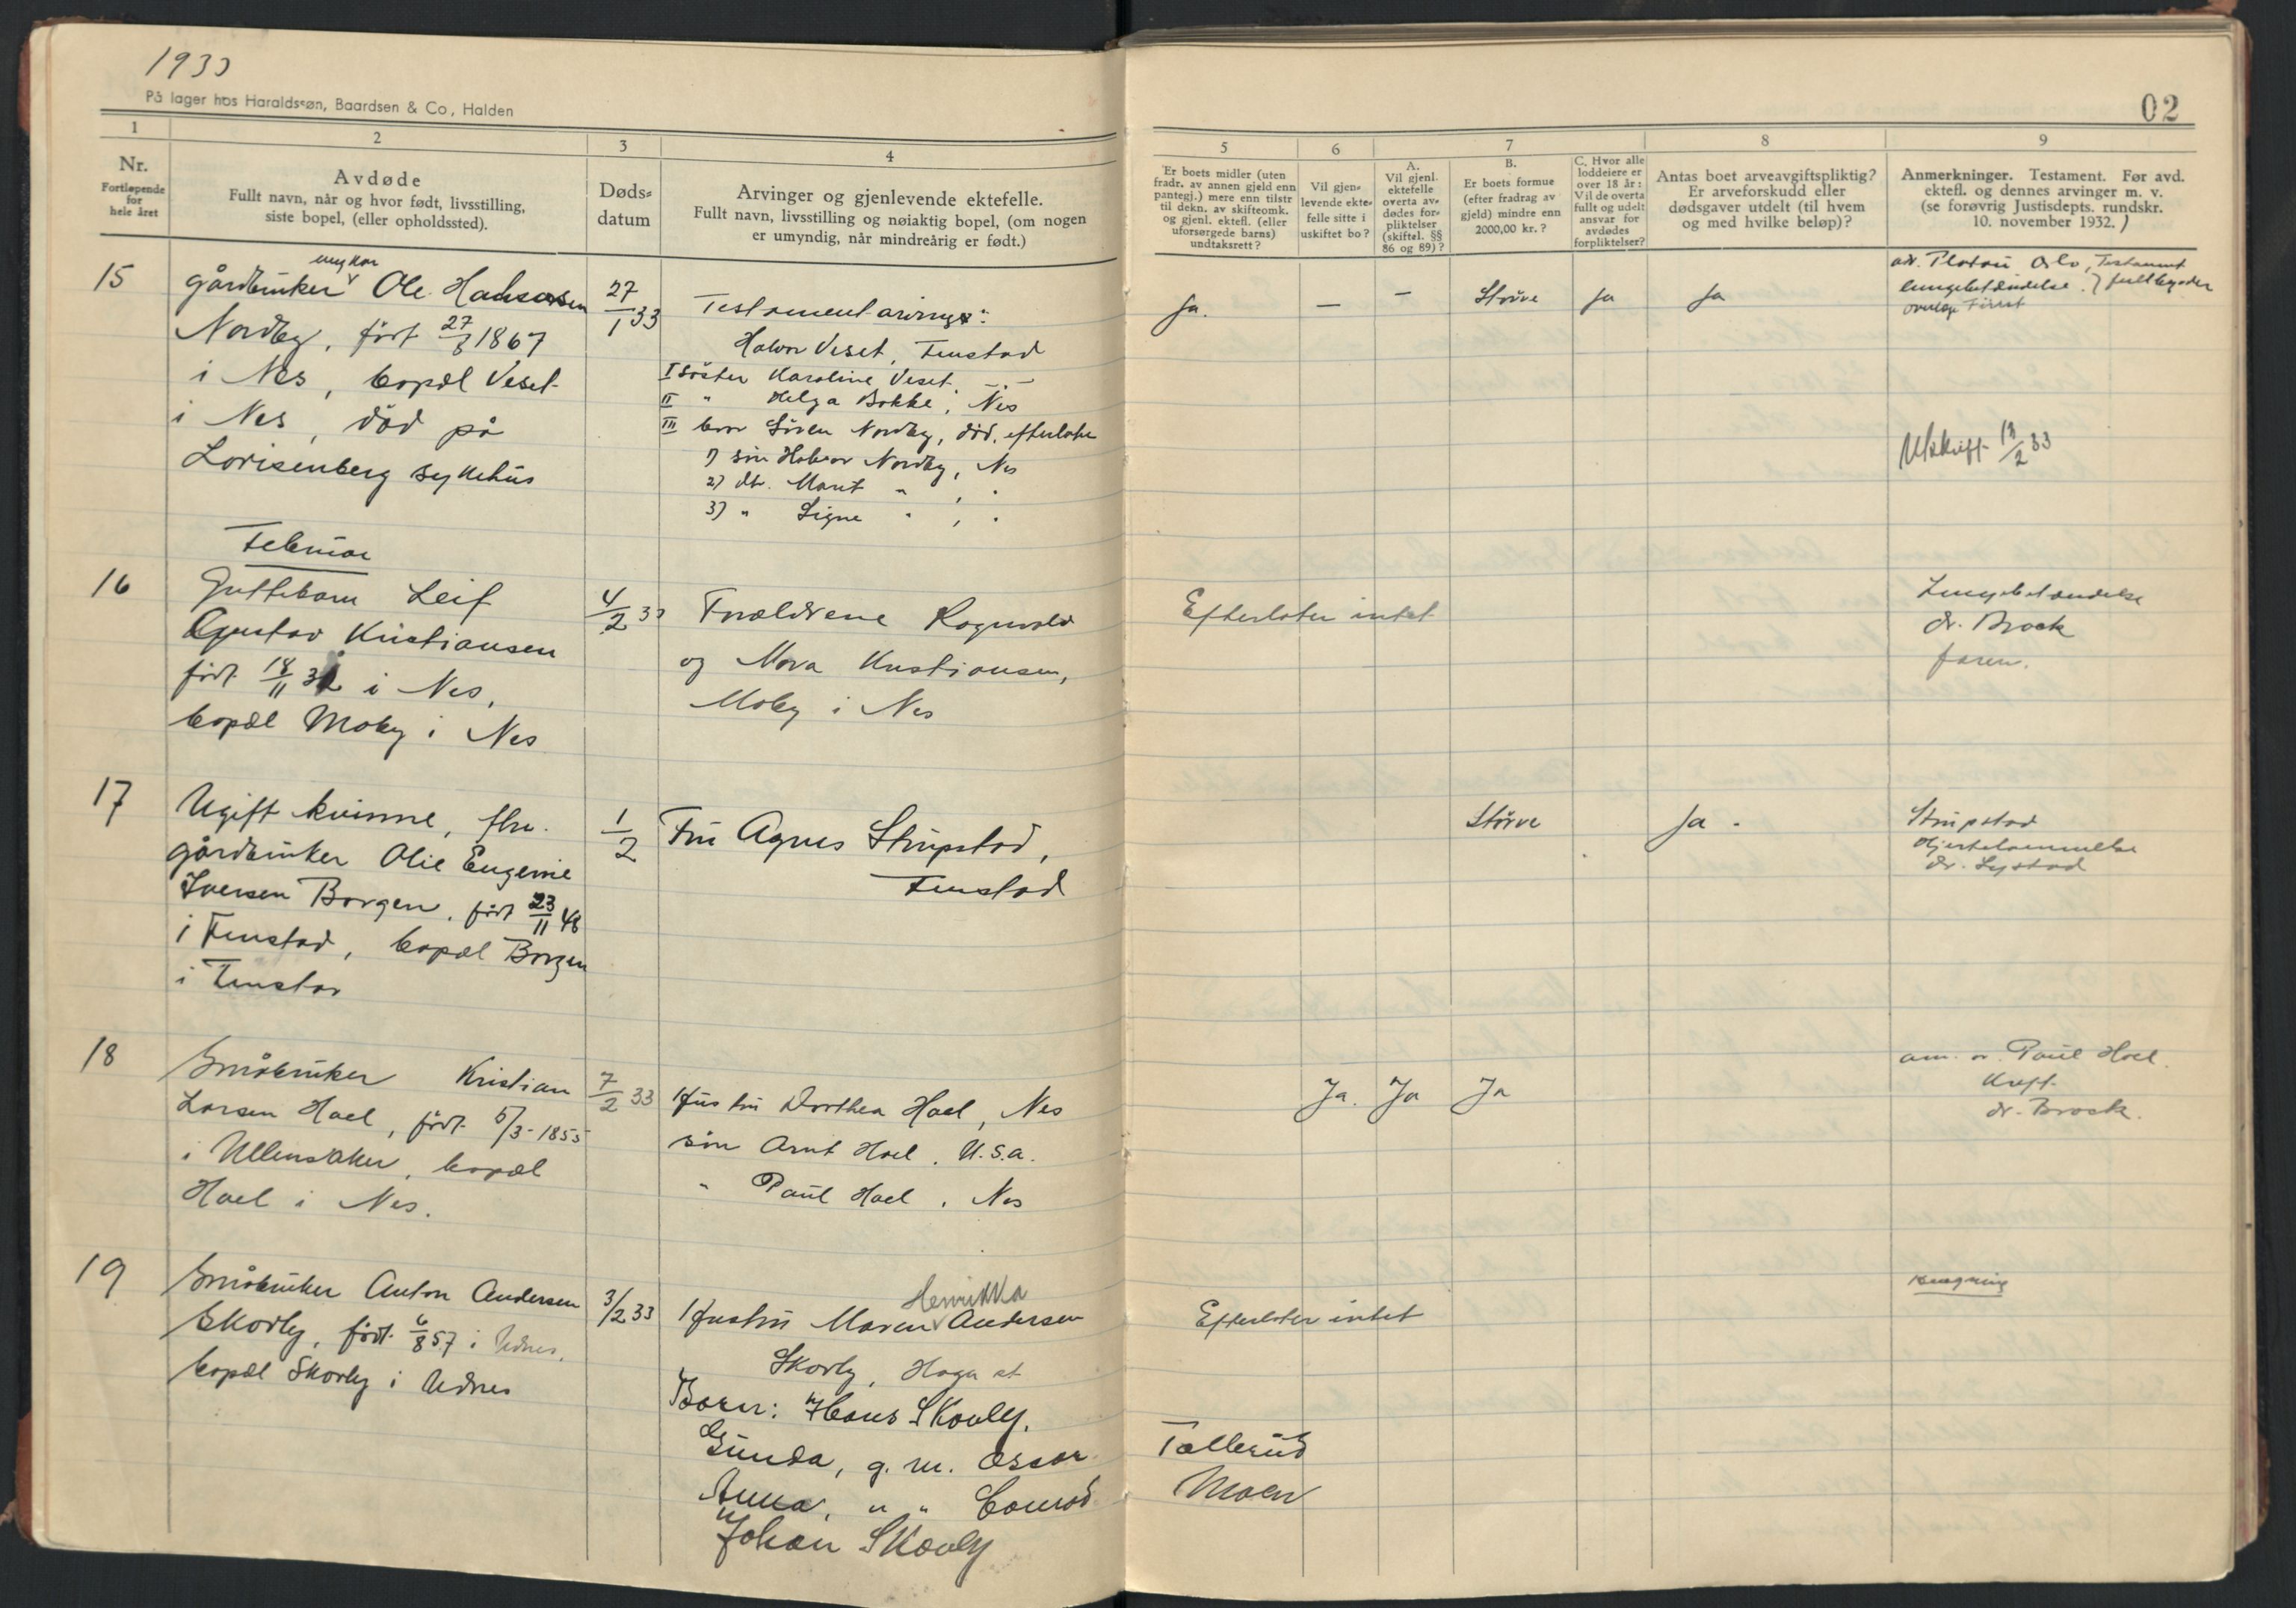 1933
På lager hos Haraldssøn, Baardsen & Co, Halden
02
1
2
3
4
5
6
7
8
9
Nr.
Fortløpende
for
hele året
Avdøde
Fullt navn, når og hvor født, livsstilling,
siste bopel, (eller opholdssted).
Døds-
datum
Arvinger og gjenlevende ektefelle.
Fullt navn, livsstilling og nøiaktig bopel, (om nogen
er umyndig, når mindreårig er født.)
Er boets midler (uten
fradr. av annen gjeld enn
pantegj.) mere enn tilstr
til dekn. av skifteomk.
og gjenl. ektefl. (eller
uforsørgede barns)
undtaksrett?
Vil gjen-
levende ekte-
felle sitte i
uskiftet bo?
A.
Vil gjenl.
ektefelle
overta av-
dødes for-
pliktelser
(skiftel. §§
86 og 89)?
B.
Er boets formue
(efter fradrag av
gjeld) mindre enn
2000,00 kr.?
C. Hvor alle
loddeiere er
over 18 år:
Vil de overta
fullt og udelt
ansvar for
avdødes
forpliktelser?
Antas boet arveavgiftspliktig?
Er arveforskudd eller
dødsgaver utdelt (til hvem
og med hvilke beløp)?
Anmerkninger. Testament. Før avd.
ektefl. og dennes arvinger m. v.
(se forøvrig Justisdepts. rundskr.
10. november 1932.)
15
ungkar
gårdbruker Ole Halvorsen
Nordby, født 27/3 1867
i Nes, bopæl Veset
i Nes, död på
Lovisenberg sykehus
27/1 33
Testamentarvinger:
Halvor Veset, Fenstad
I söster Karoline Veset, -"-
II " Helga Bakke, Nes
III bror Sören Nordby, död, efterlater
1) sön Halvor Nordby, Nes
2) dtr. Marit " , "
3) " Signe " , "
Ja. — — Större Ja Ja
adv. Platou Oslo, Testament
lungebetændelse } fullbyrder
overlæge
Utskrift 18/2 33
Februar
16
Guttebarn Leif
Gustav Kristiansen
født 18/11 32 i Nes,
bopæl Moby i Nes
4/2 33
Forældrene Ragnvald
og Mora Kristiansen,
Moby i Nes
Efterlater intet
Lungebetændelse
dr. Brock
faren.
17
Ugift kvinne, fhv.
gårdbruker Olie Eugenie
Iversen Borgen, født 23/11 48
i Fenstad, bopæl Borgen
i Fenstad
1/2
Fru Agnes Strupstad,
Fenstad
Större Ja.
Strupstad
Hjertelammelse
dr. Systad
18
Småbruker Kristian
Larsen Hoel, født 5/3-1855
i Ullensaker, bopæl
Hoel i Nes.
7/2 33
Hustru Dorthea Hoel, Nes
sön Arnt Hoel, U.S.A.
" Paul Hoel, Nes
Ja. Ja Ja
anm. av Paul Hoel.
Kreft
dr. Brock.
19
Småbruker Anton Andersen
Skovly, født 6/8 57 i Udnes,
bopæl Skovly i Udnes
3/2 33
Henrikka
Hustru Maren Andersen
Skovly, Haga st
Efterlater intet
Barn: Hans Skovly.
Gunda, g. m. Oscar Tællerud
Anna, " " Conrad Moen
Johan Skovly